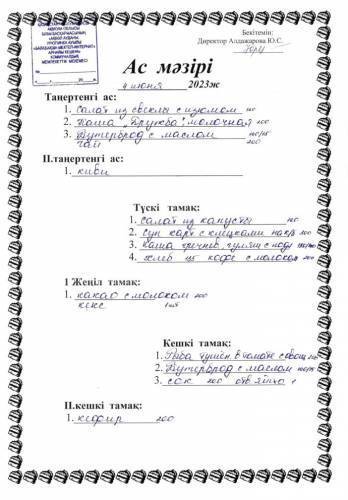 Бекітемін:
Директор Алджарова Ю.С.
Ас мәзірі
4 июня 2023ж
Таңертеңгі ас:
1. Салат из свеклы с изюмом
2. Каша "Дружба" молочная 200
3. Бутерброд с маслом
чай 200
II.таңертеңгі ас:
1. киви
Түскі тамақ:
1. Салат из капусты
2. Суп карт с клецками
3. Каша гречнев, гуляш с
4. хлеб кофе с молоком 200
I Жеңіл тамақ:
1. какао с молоком 200
кекс 1шт
Кешкі тамақ:
1. Рыба тушен. в томате с овощ
2. Бутерброд с маслом
3. сок 200 отв яйцо 1
II.кешкі тамақ:
1. кефир 200